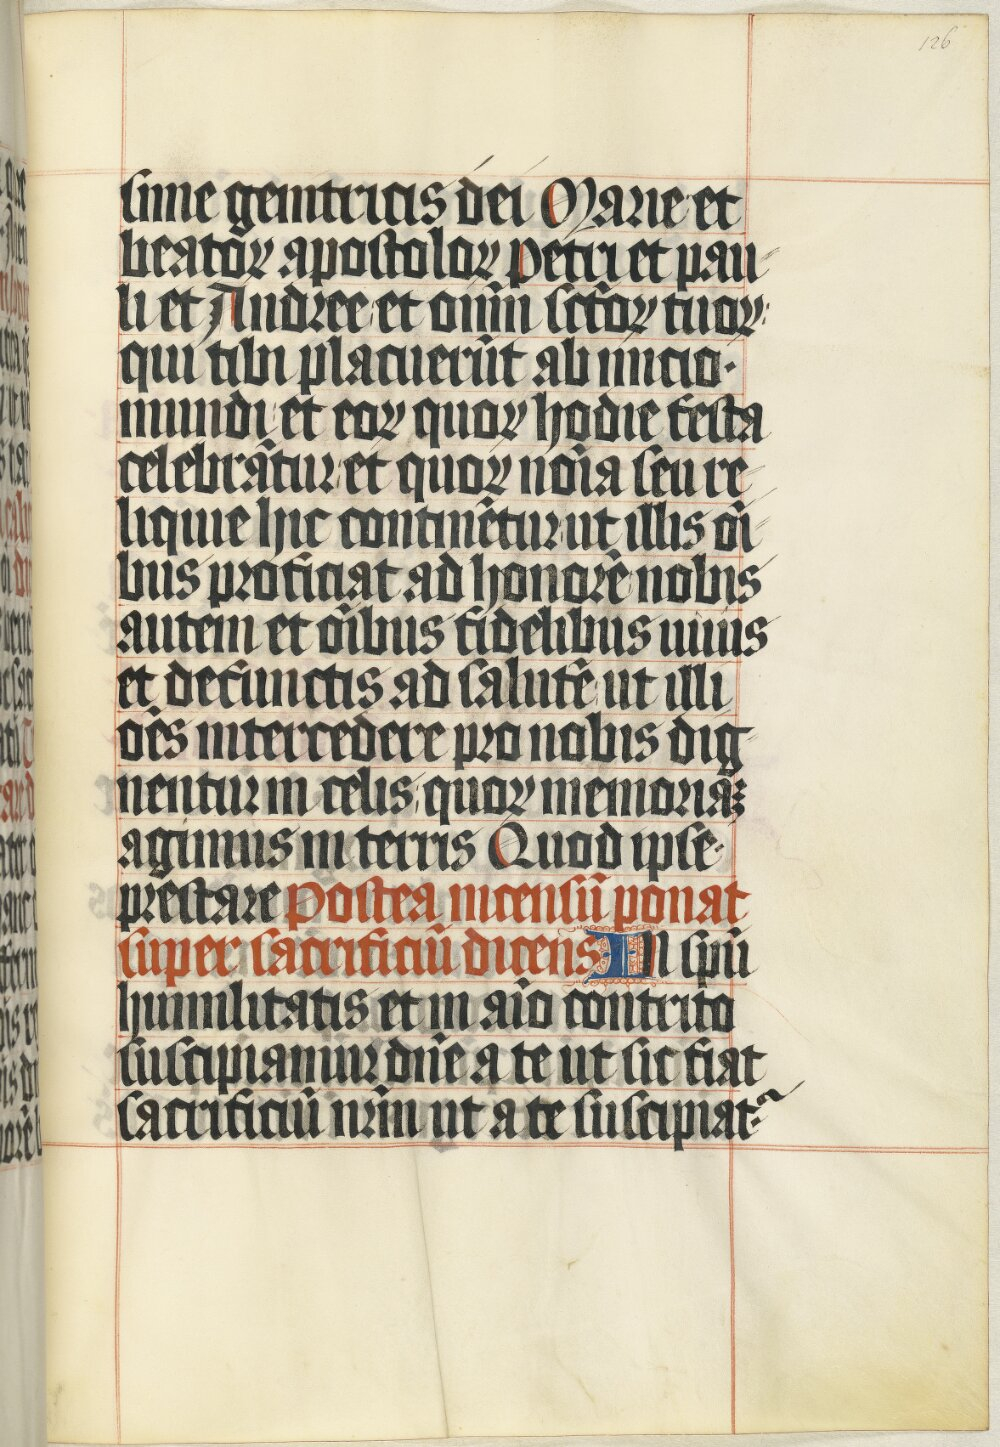 126
sime genitricis dei Marie et
beatoꝝ apostoloꝝ petri et pau-
li et Andree et om̄n sctōꝝ tuoꝝ:
qui tibi placuerūt ab inicio·
mundi et eoꝝ quoꝝ hodie festa
celebrāntur et quoꝝ noīa seu re-
liquie hic continētur ut illis oī-
bus proficiat ad honorē nobis
autem et oībus fidelibus uiuis
et defunctis ad salutē ut illi
oēs intercedere pro nobis dig-
nentur in celis quoꝝ memoriaꝫ
agimus in terris Quod ipse·
prestare Postea incensū ponat
super sacrificiū dicens In spū
humilitatis et in aīo contrito
suscipiamur dn̄e a te ut sic fiat
sacrificiū nr̄m ut a te suscipiat᷑